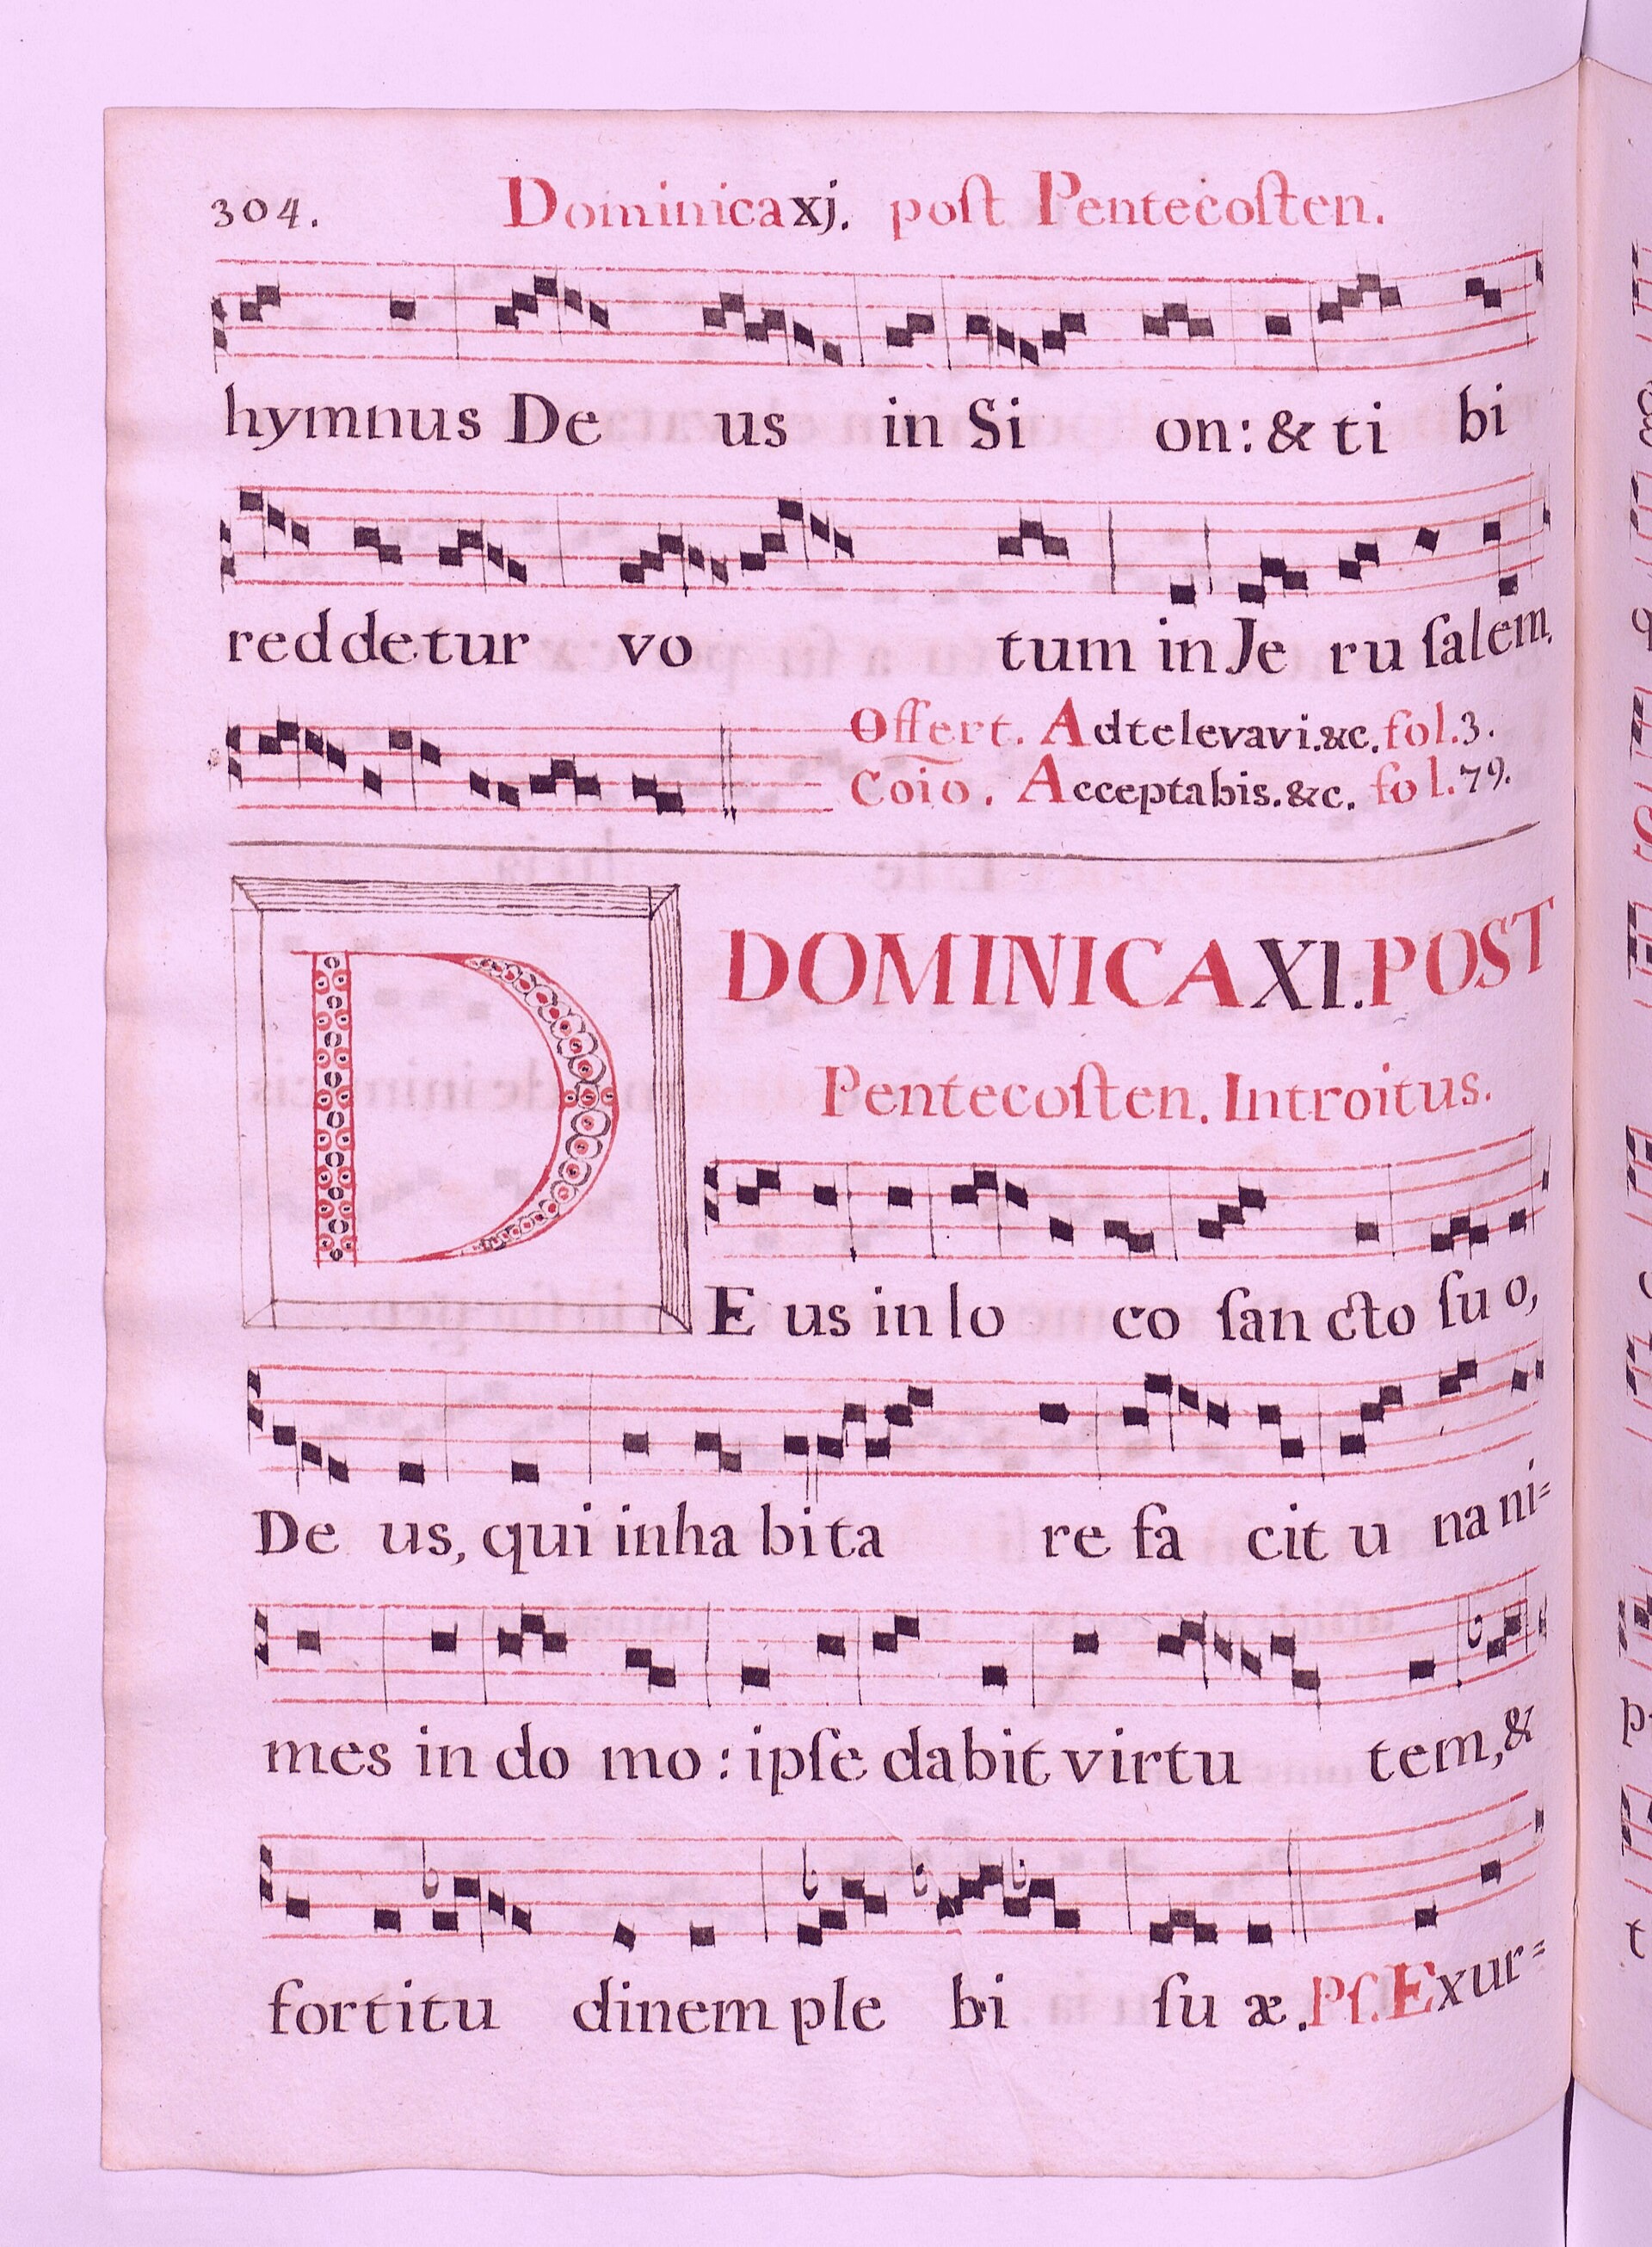 304. Dominica xj. poſt Pentecoſten.
hymnus De us in Si on: & ti bi
reddetur vo tum in Je ru ſalem.
Offert. Ad te levavi. &c. fol. 3.
Coio. Acceptabis. &c. fol. 79.
DOMINICA XI. POST
Pentecoſten. Introitus.
DE us in lo co ſan cto ſu o,
De us, qui inha bita re fa cit u na ni=
mes in do mo: ipſe dabit virtu tem, &
fortitu dinem ple bi ſu æ. Pſ. Exur=